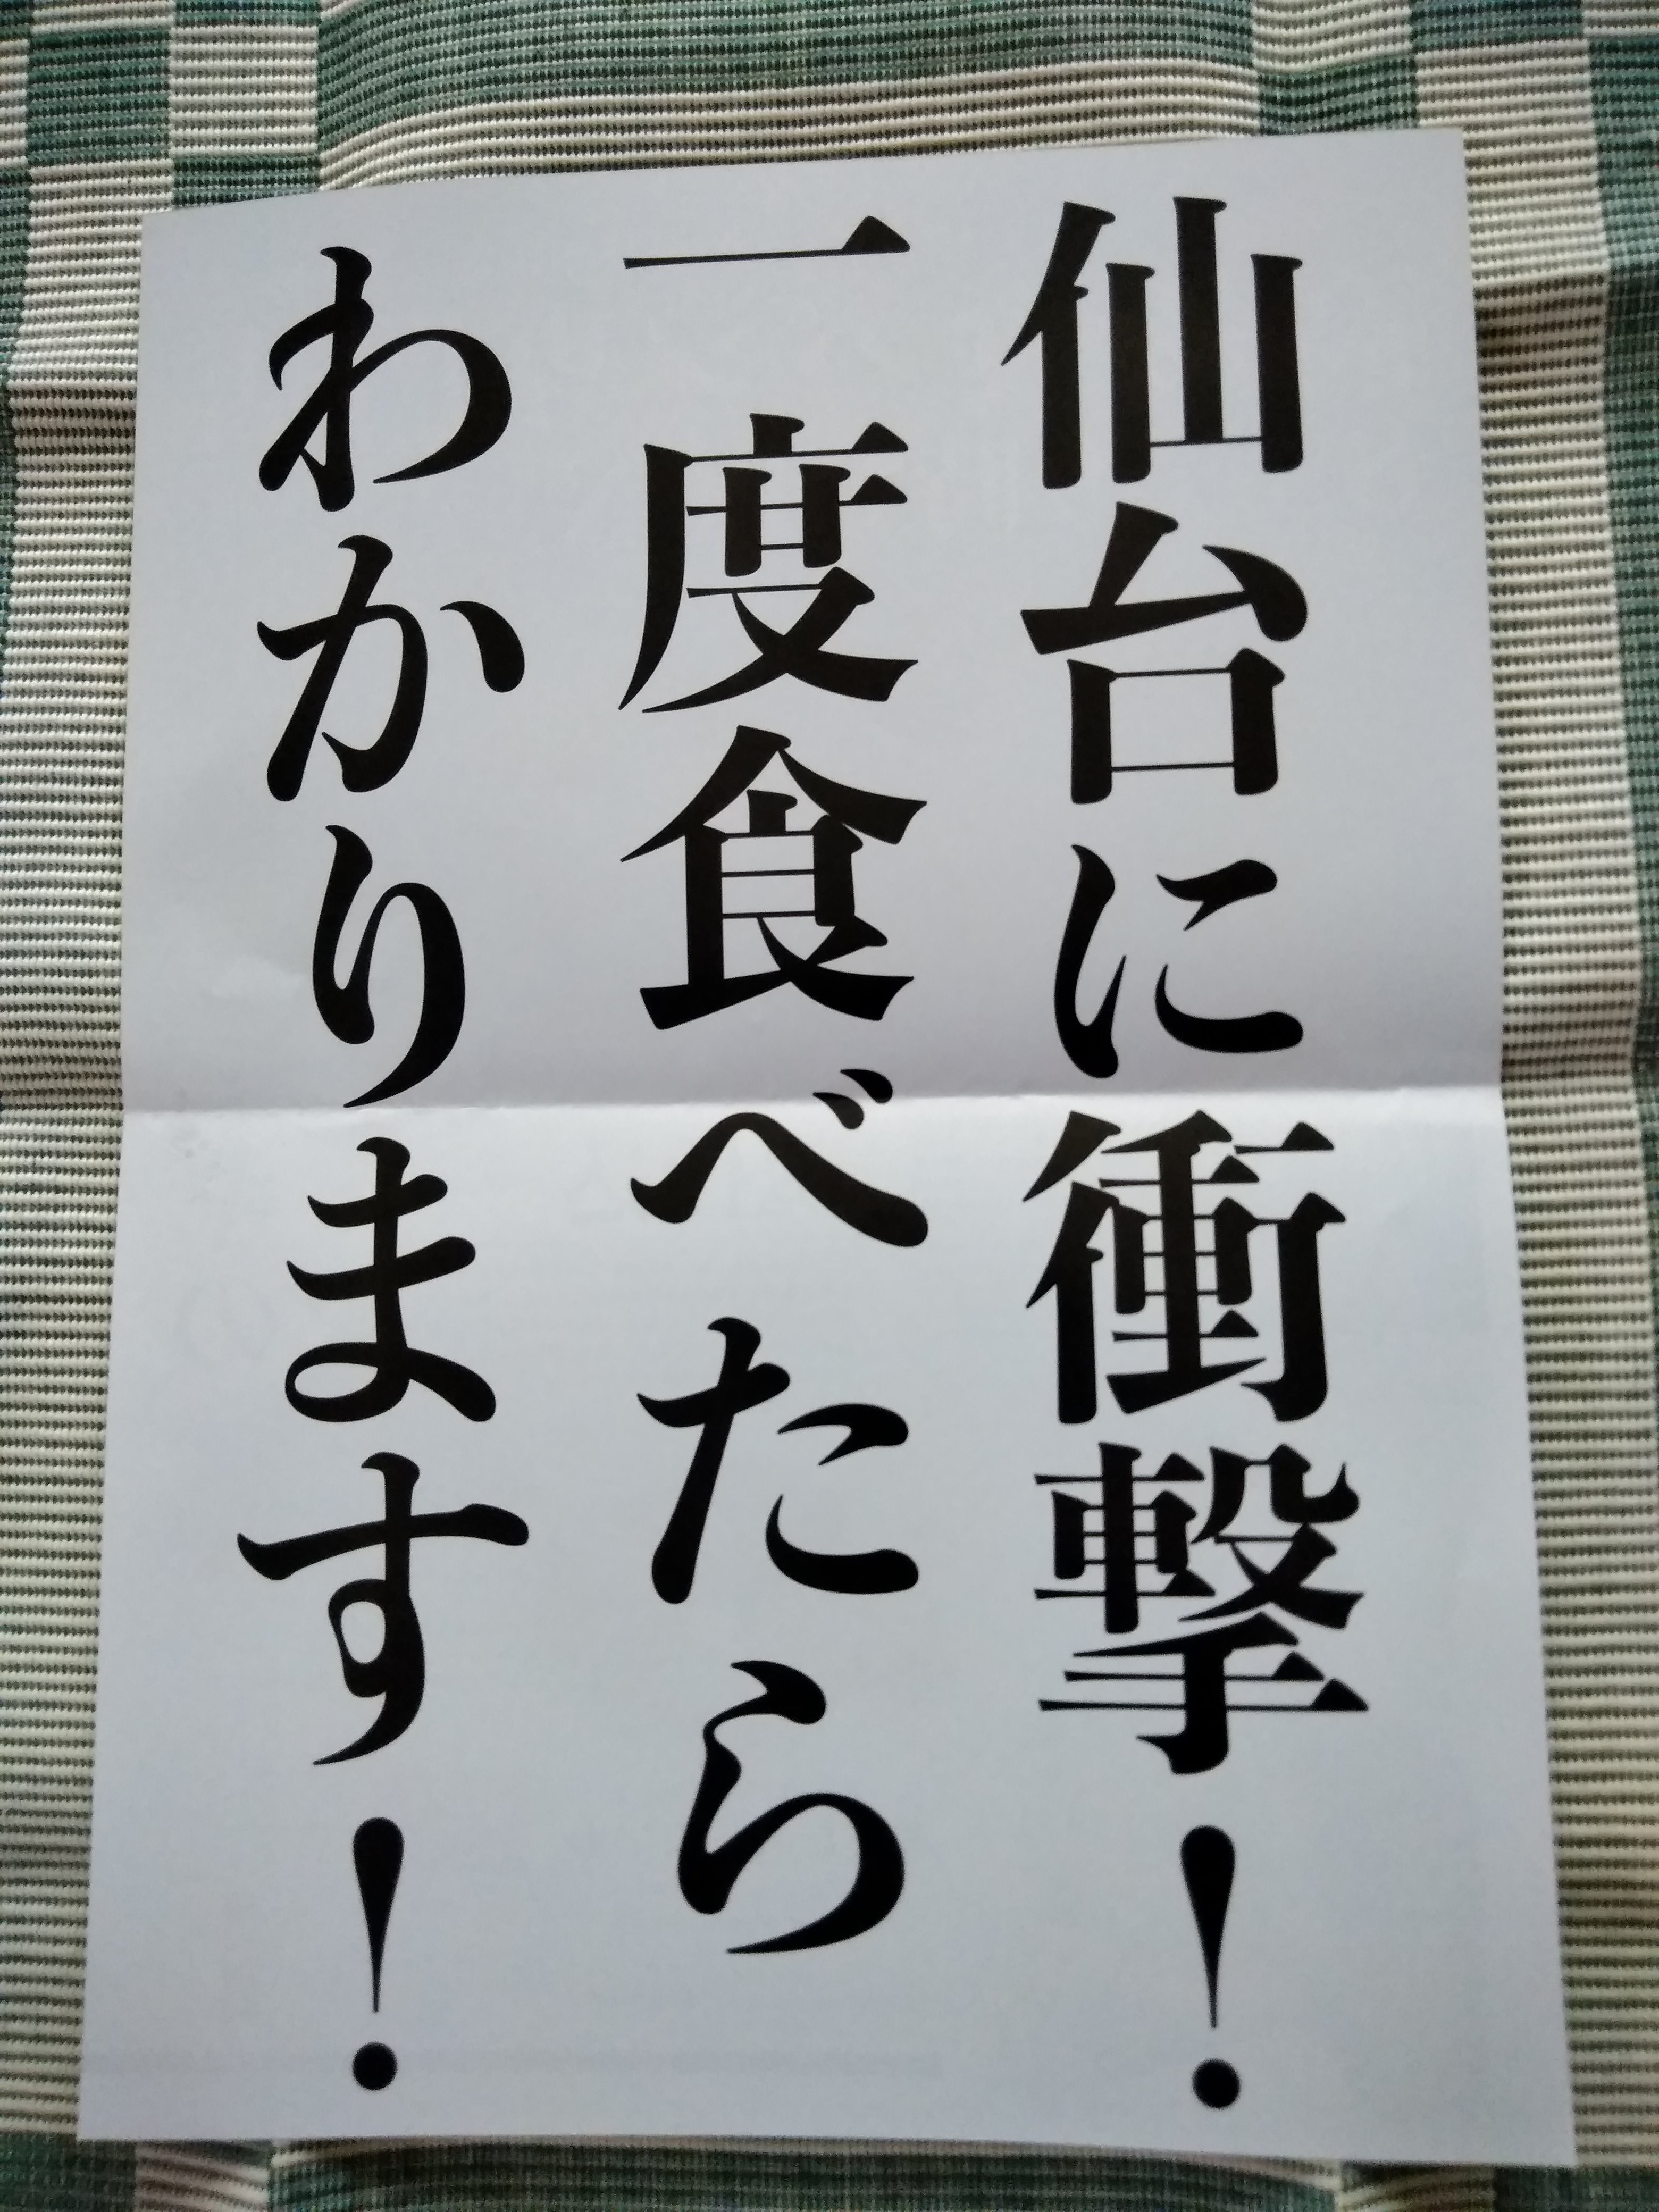 仙台に衝撃！
一度食べたら
わかります！